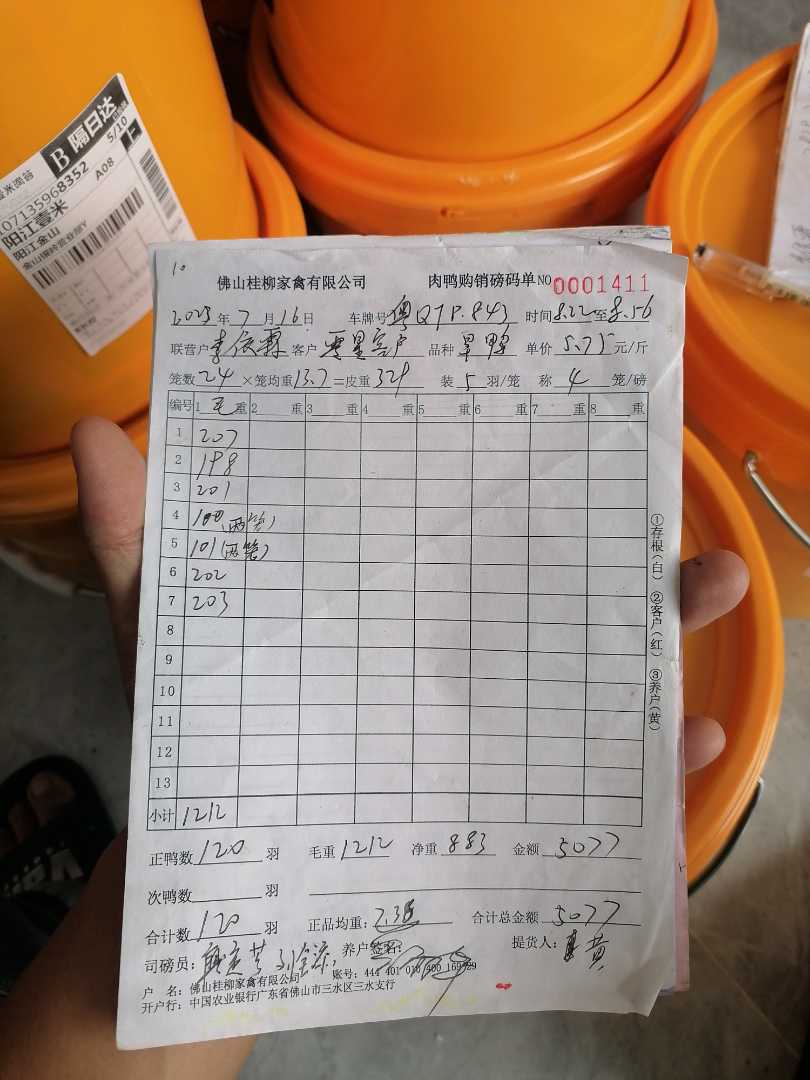 B 隔日达
5/10
A08
07135968352
阳江壹米
阳江金山
10
佛山桂柳家禽有限公司 肉鸭购销磅码单 NO 0001411
2023年7月16日 车牌号 粤Q7P.843 时间 8.22至8.56
联营户 李依霖 客户 零星客户 品种 单价 5.75 元/斤
笼数 24 ×笼均重 13.7 =皮重 329 装 5 羽/笼 称 4 笼/磅
编号 1 毛重 2 重 3 重 4 重 5 重 6 重 7 重 8 重
1 207
2 198
3 201
4 100(两笼)
5 101(两笼)
6 202
7 203
8
9
10
11
12
13
小计 1212
①存根(白) ②客户(红) ③养户(黄)
正鸭数 120 羽 毛重 1212 净重 883 金额 5077
次鸭数 羽
合计数 120 羽 正品均重: 7.35 合计总金额 5077
司磅员: 养户签名: 提货人: 黄
户 名: 佛山桂柳家禽有限公司 账号: 444 401 010 400 169
开户行: 中国农业银行广东省佛山市三水区三水支行